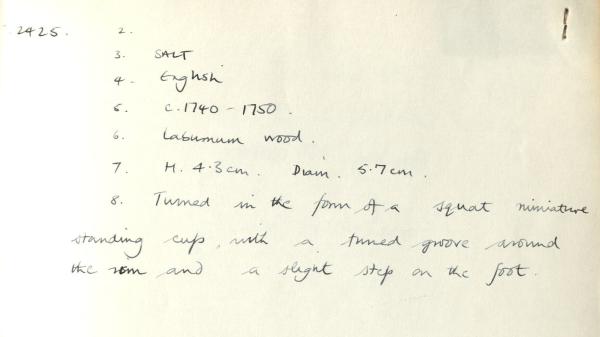 2425. 2.
3. SALT
4. English
5. c.1740 - 1750.
6. Laburnum wood.
7. H. 4.3cm. Diam. 5.7cm.
8. Turned in the form of a squat miniature
standing cup, with a turned groove around
the rim and a slight step on the foot.